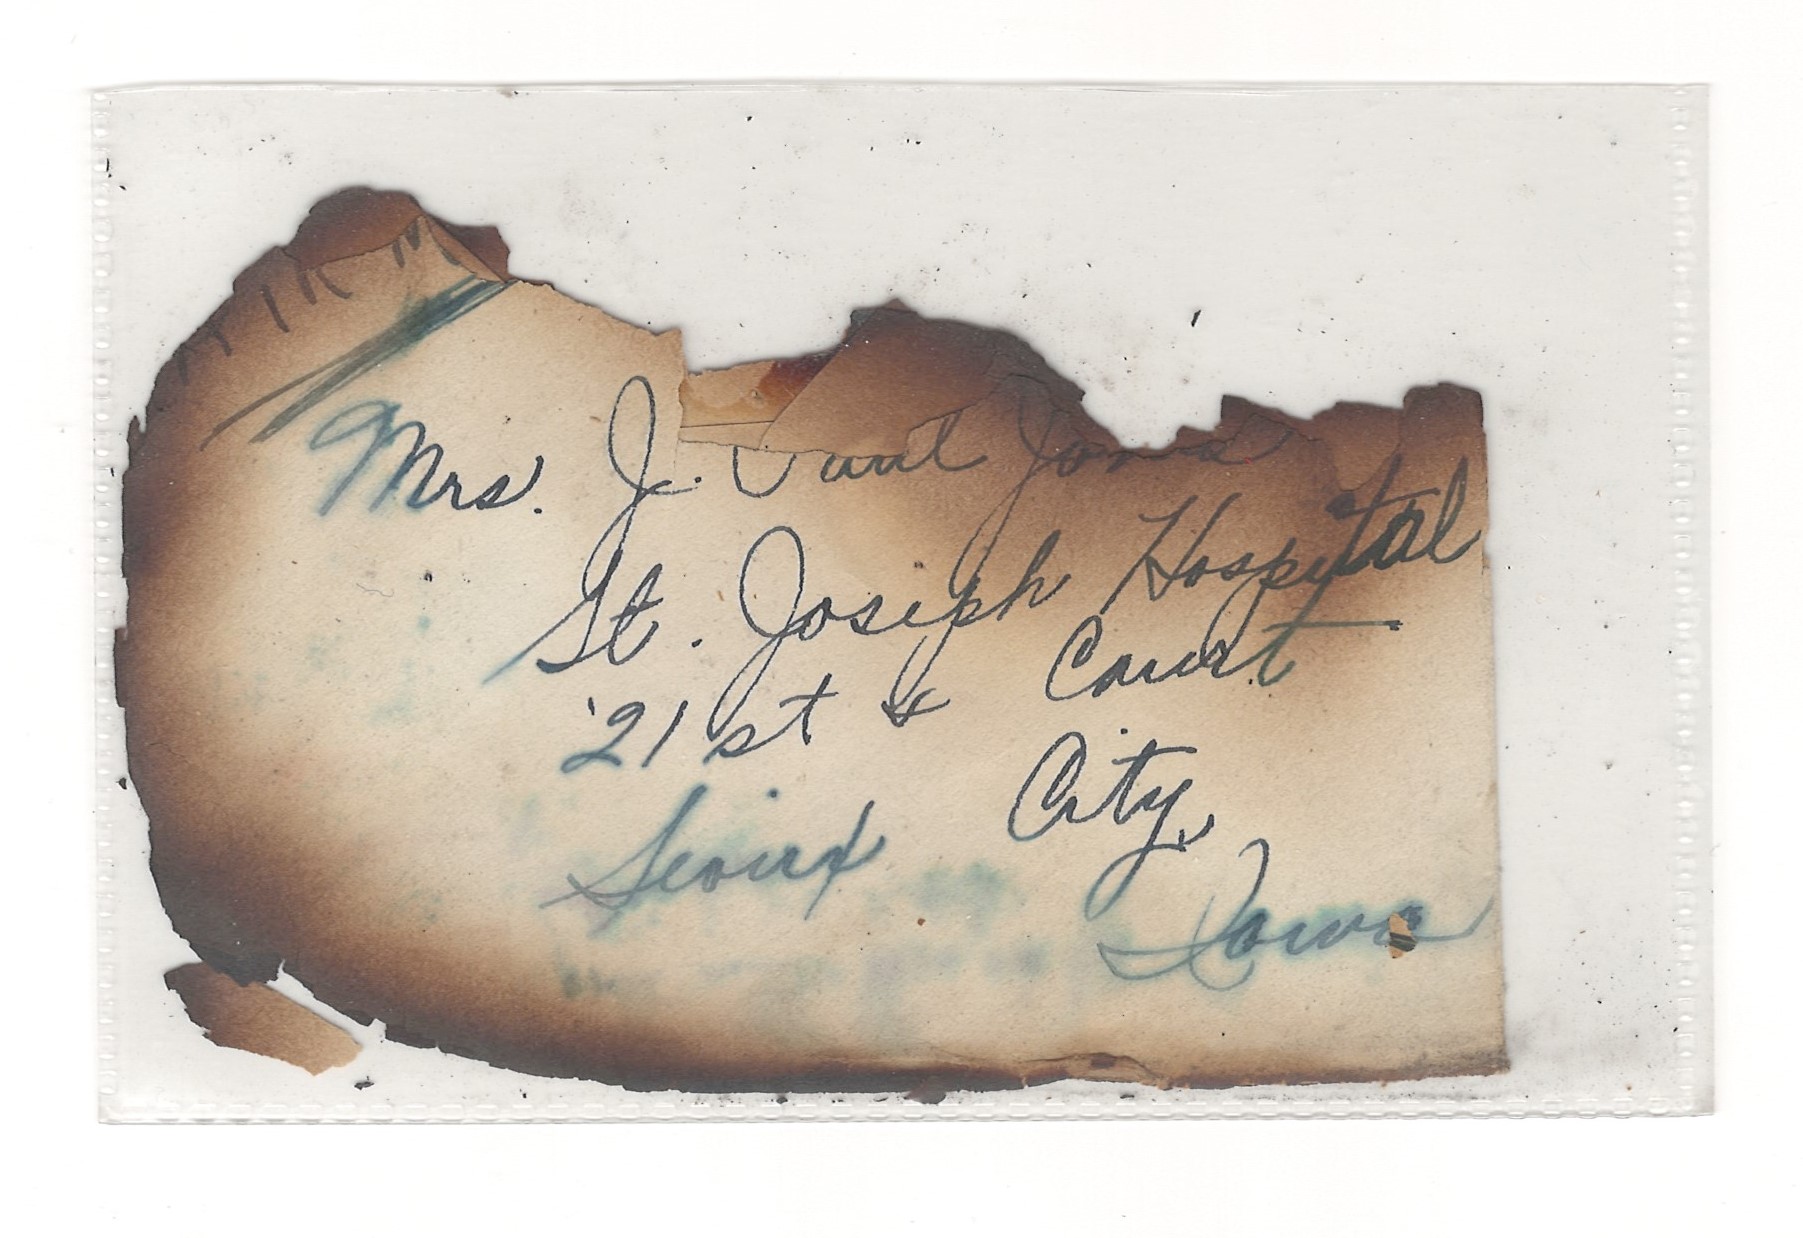 AIR M
Mrs. J. Paul Jones
St. Joseph Hospital
21st & Court
Sioux City,
Iowa